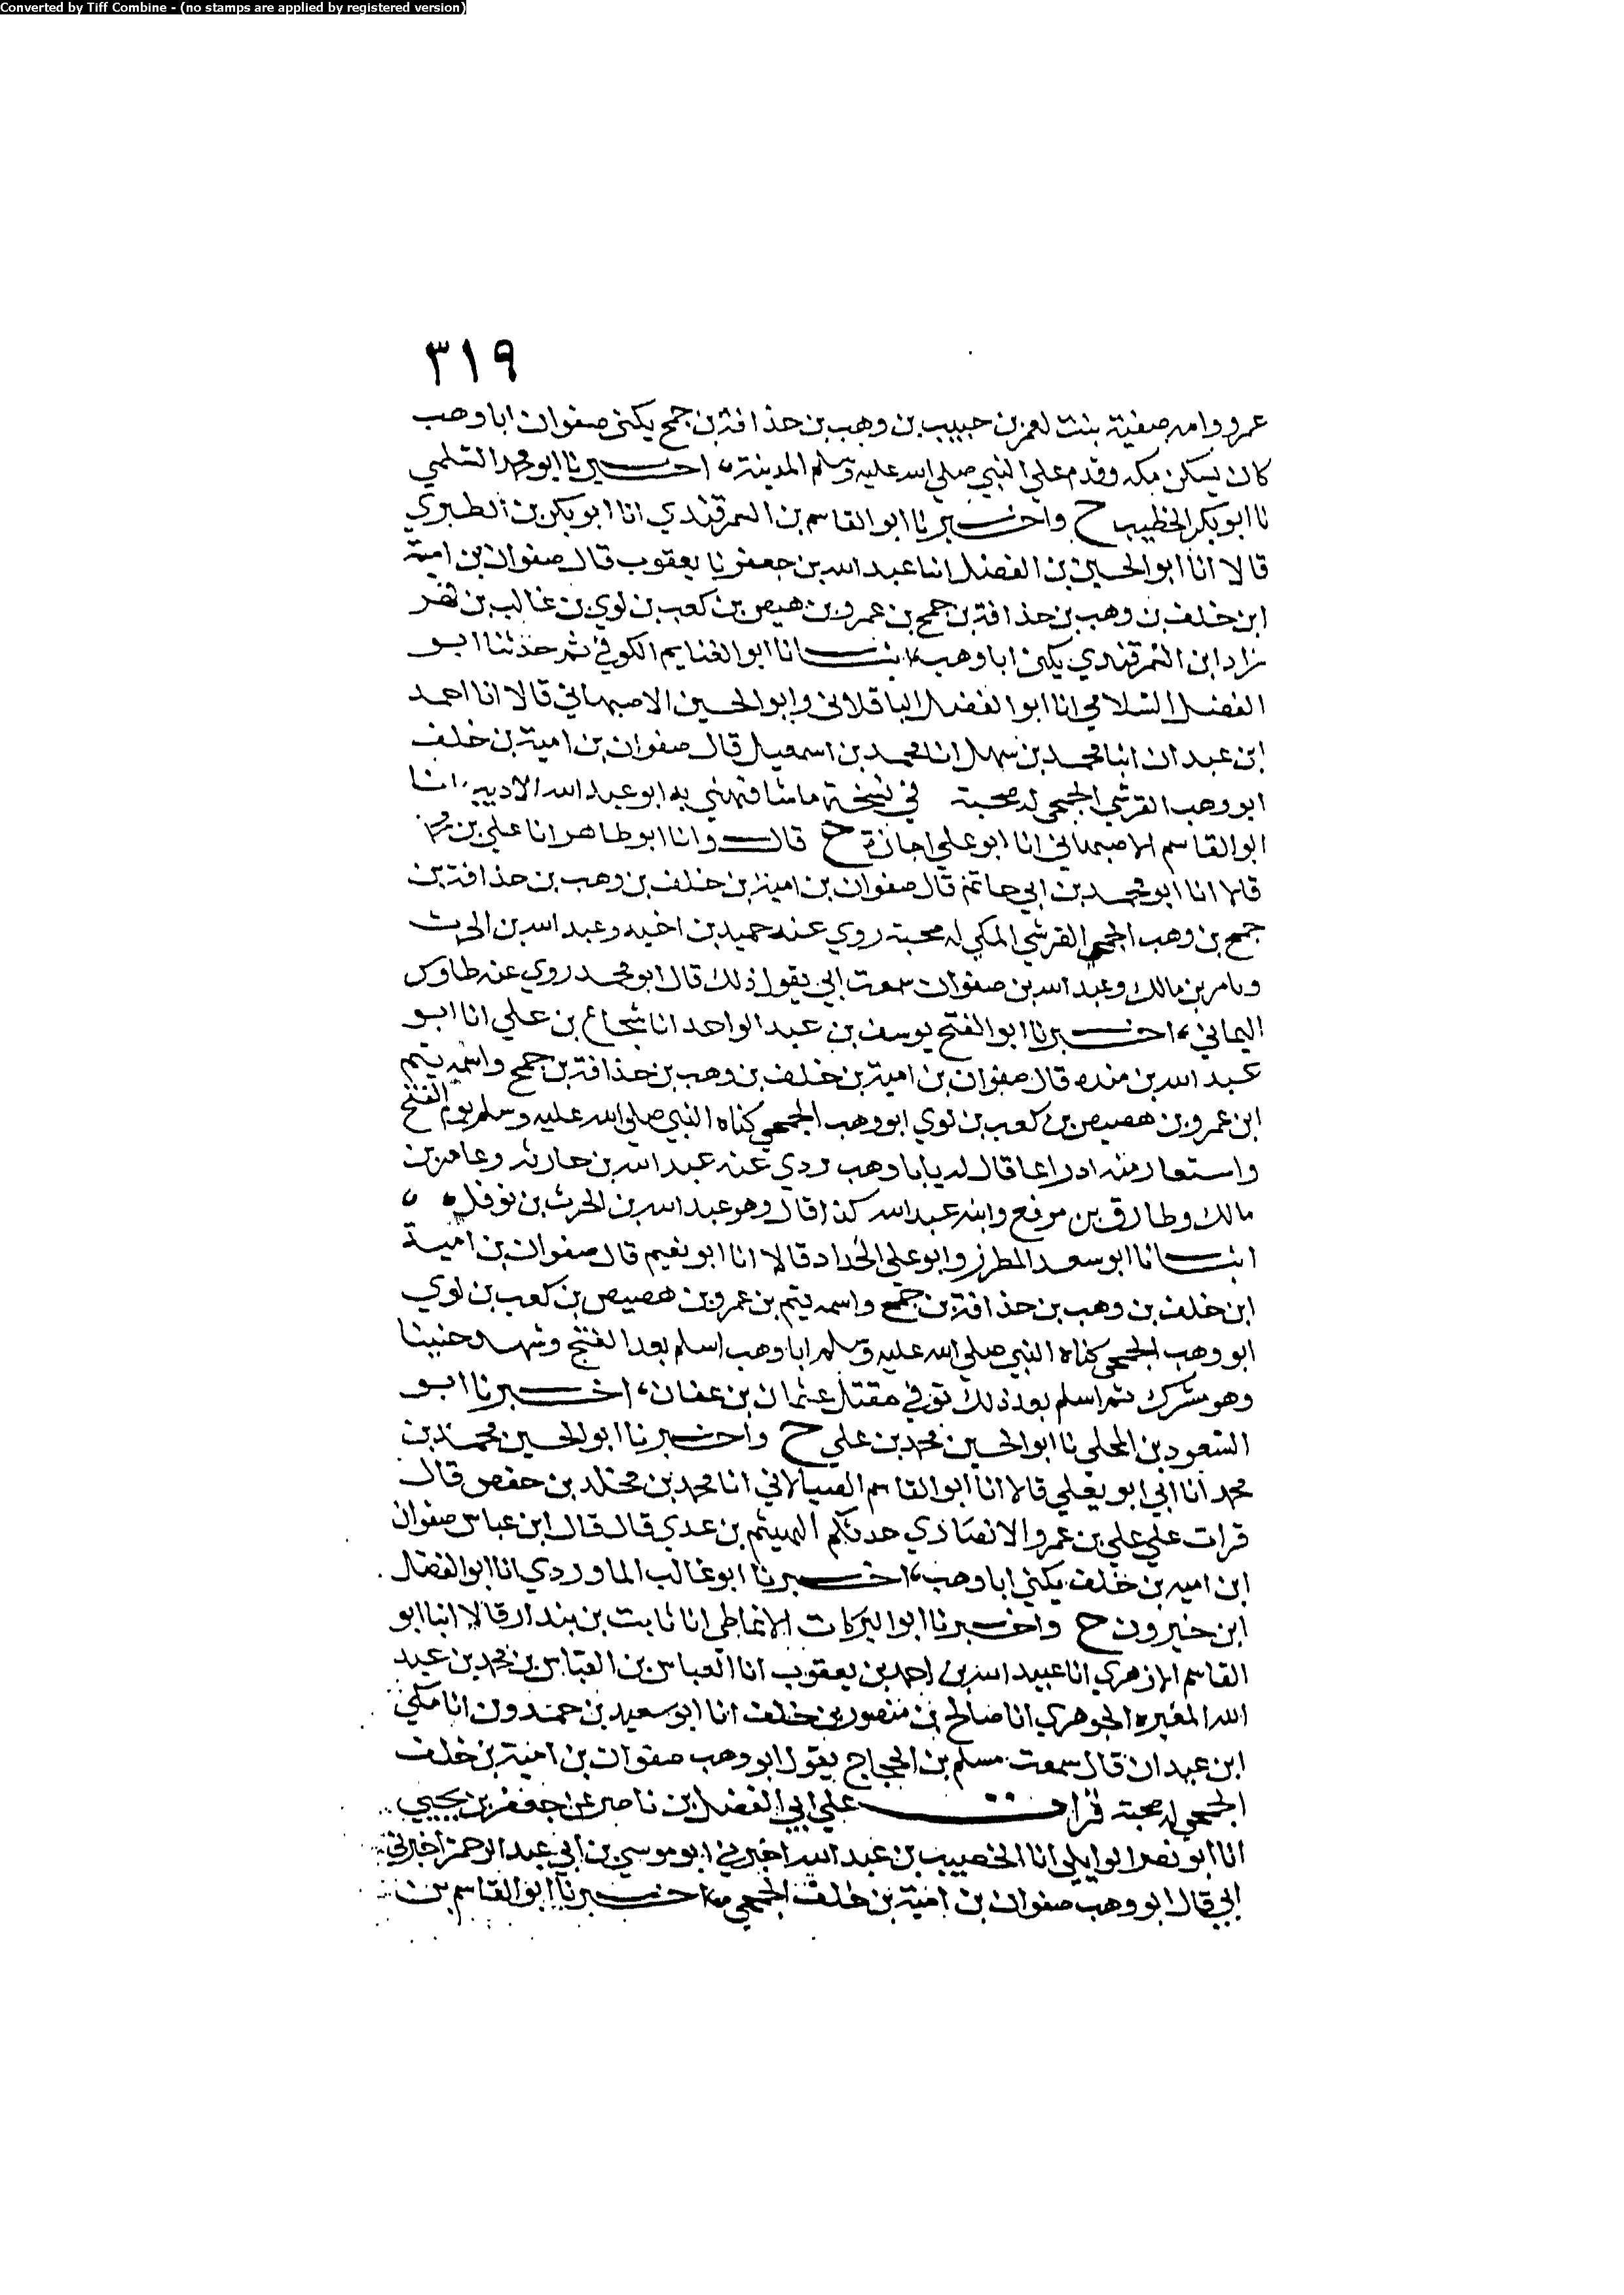 Converted by Tiff Combine - (no stamps are applied by registered version)
٣١٩
عمرو وامه صفية بنت لعمر بن حبيب بن وهب بن حذافة بن جمح يكنى صفوان ابا وهب
كان يسكن مكه وقدم على النبي صلى الله عليه وسلم المدينة، اخبرنا ابو محمد السلمي
نا ابو بكر الخطيب ح واخبرنا ابو القاسم بن السمرقندي انا ابو بكر بن الطبري
قالا انا ابو الحسين بن الفضل انا عبد الله بن جعفر نا يعقوب قال صفوان بن امية
ابن خلف بن وهب بن حذافة بن جمح بن عمرو بن هيص بن كعب بن لوي بن غالب بن فهر
زاد ابن السمرقندي يكنى ابا وهب، انبانا ابو الغنايم الكوفي ثم حدثنا ابو
الفضل السلامي انا ابو الفضل الباقلاني وابو الحسين الاصبهاني قالا انا احمد
ابن عبدان انبا محمد بن سهل انا محمد بن اسمعيل قال صفوان بن امية بن خلف
ابو وهب القرشي الجمحي له صحبة في نسخة ما شافهني به ابو عبد الله الاديب، انا
ابو القاسم الاصبهاني انا ابو علي اجازة ح قال وانا ابو طاهر انا علي بن
قالا انا ابو محمد بن ابي حاتم قال صفوان بن امية بن خلف بن وهب بن حذافة بن
جمح بن وهب الجمحي القرشي المكي له صحبة روي عنه حميد بن اخيه وعبد الله بن الحرث
وعامر بن مالك وعبد الله بن صفوان سمعت ابي يقول ذلك قال ابو محمد روي عنه طاوس
اليماني، اخبرنا ابو الفتح يوسف بن عبد الواحد انا شجاع بن علي انا ابو
عبد الله بن منده قال صفوان بن امية بن خلف بن وهب بن حذافة بن جمح واسمه تيم
ابن عمرو بن هصيص بن كعب بن لوي ابو وهب الجمحي كناه النبي صلى الله عليه وسلم يوم الفتح
واستعار منه ادراعا قال له يا با وهب روي عنه عبد الله بن حارثه وعامر بن
مالك وطارق بن مرقع وابنه عبد الله كذا قال وهو عبد الله بن الحرث بن نوفل، ،
انبانا ابو سعد المطرز وابو علي الحداد قالا انا ابو نعيم قال صفوان بن امية
ابن خلف بن وهب بن حذافة بن جمح واسمه تيم بن عمرو بن هصيص بن كعب بن لوي
ابو وهب الجمحي كناه النبي صلى الله عليه وسلم ابا وهب اسلم بعد الفتح وشهد حنينا
وهو مشرك ثم اسلم بعد ذلك توفي مقتل عثمان بن عفان، اخبرنا ابو
السعود بن المجلي نا ابو الحسين محمد بن علي ح واخبرنا ابو الحسين محمد بن
محمد انا ابي ابو يعلي قالا انا ابو القاسم الصيدلاني انا محمد بن مخلد بن حفص قال
قرات علي علي بن عمرو الانصاري حدثكم الهيثم بن عدي قال قال ابن عباس صفوان
ابن اميه بن خلف يكني ابا وهب، اخبرنا ابو غالب الماوردي انا ابو الفضل
ابن خيرون ح واخبرنا ابو البركات الانماطي انا ثابت بن بندار قالا انبا ابو
القاسم الازهري انا عبيد الله بن احمد بن يعقوب انا العباس بن العباس بن محمد بن عبد
الله المغيره الجوهري انا صالح بن منصور بن خلف انا ابو سعيد بن حمدون انا مكي
ابن عبدان قال سمعت مسلم بن الحجاج يقول ابو وهب صفوان بن امية بن خلف
الجمحي له صحبة قرات علي ابي الفضل بن ناصر عن جعفر بن يحيي
انا ابو نصر الوايلي انا الخصيب بن عبد الله اخبرني ابو موسي بن ابي عبد الرحمن اخبرني
ابي قال ابو وهب صفوان بن امية بن خلف الجمحي، اخبرنا ابو القاسم بن